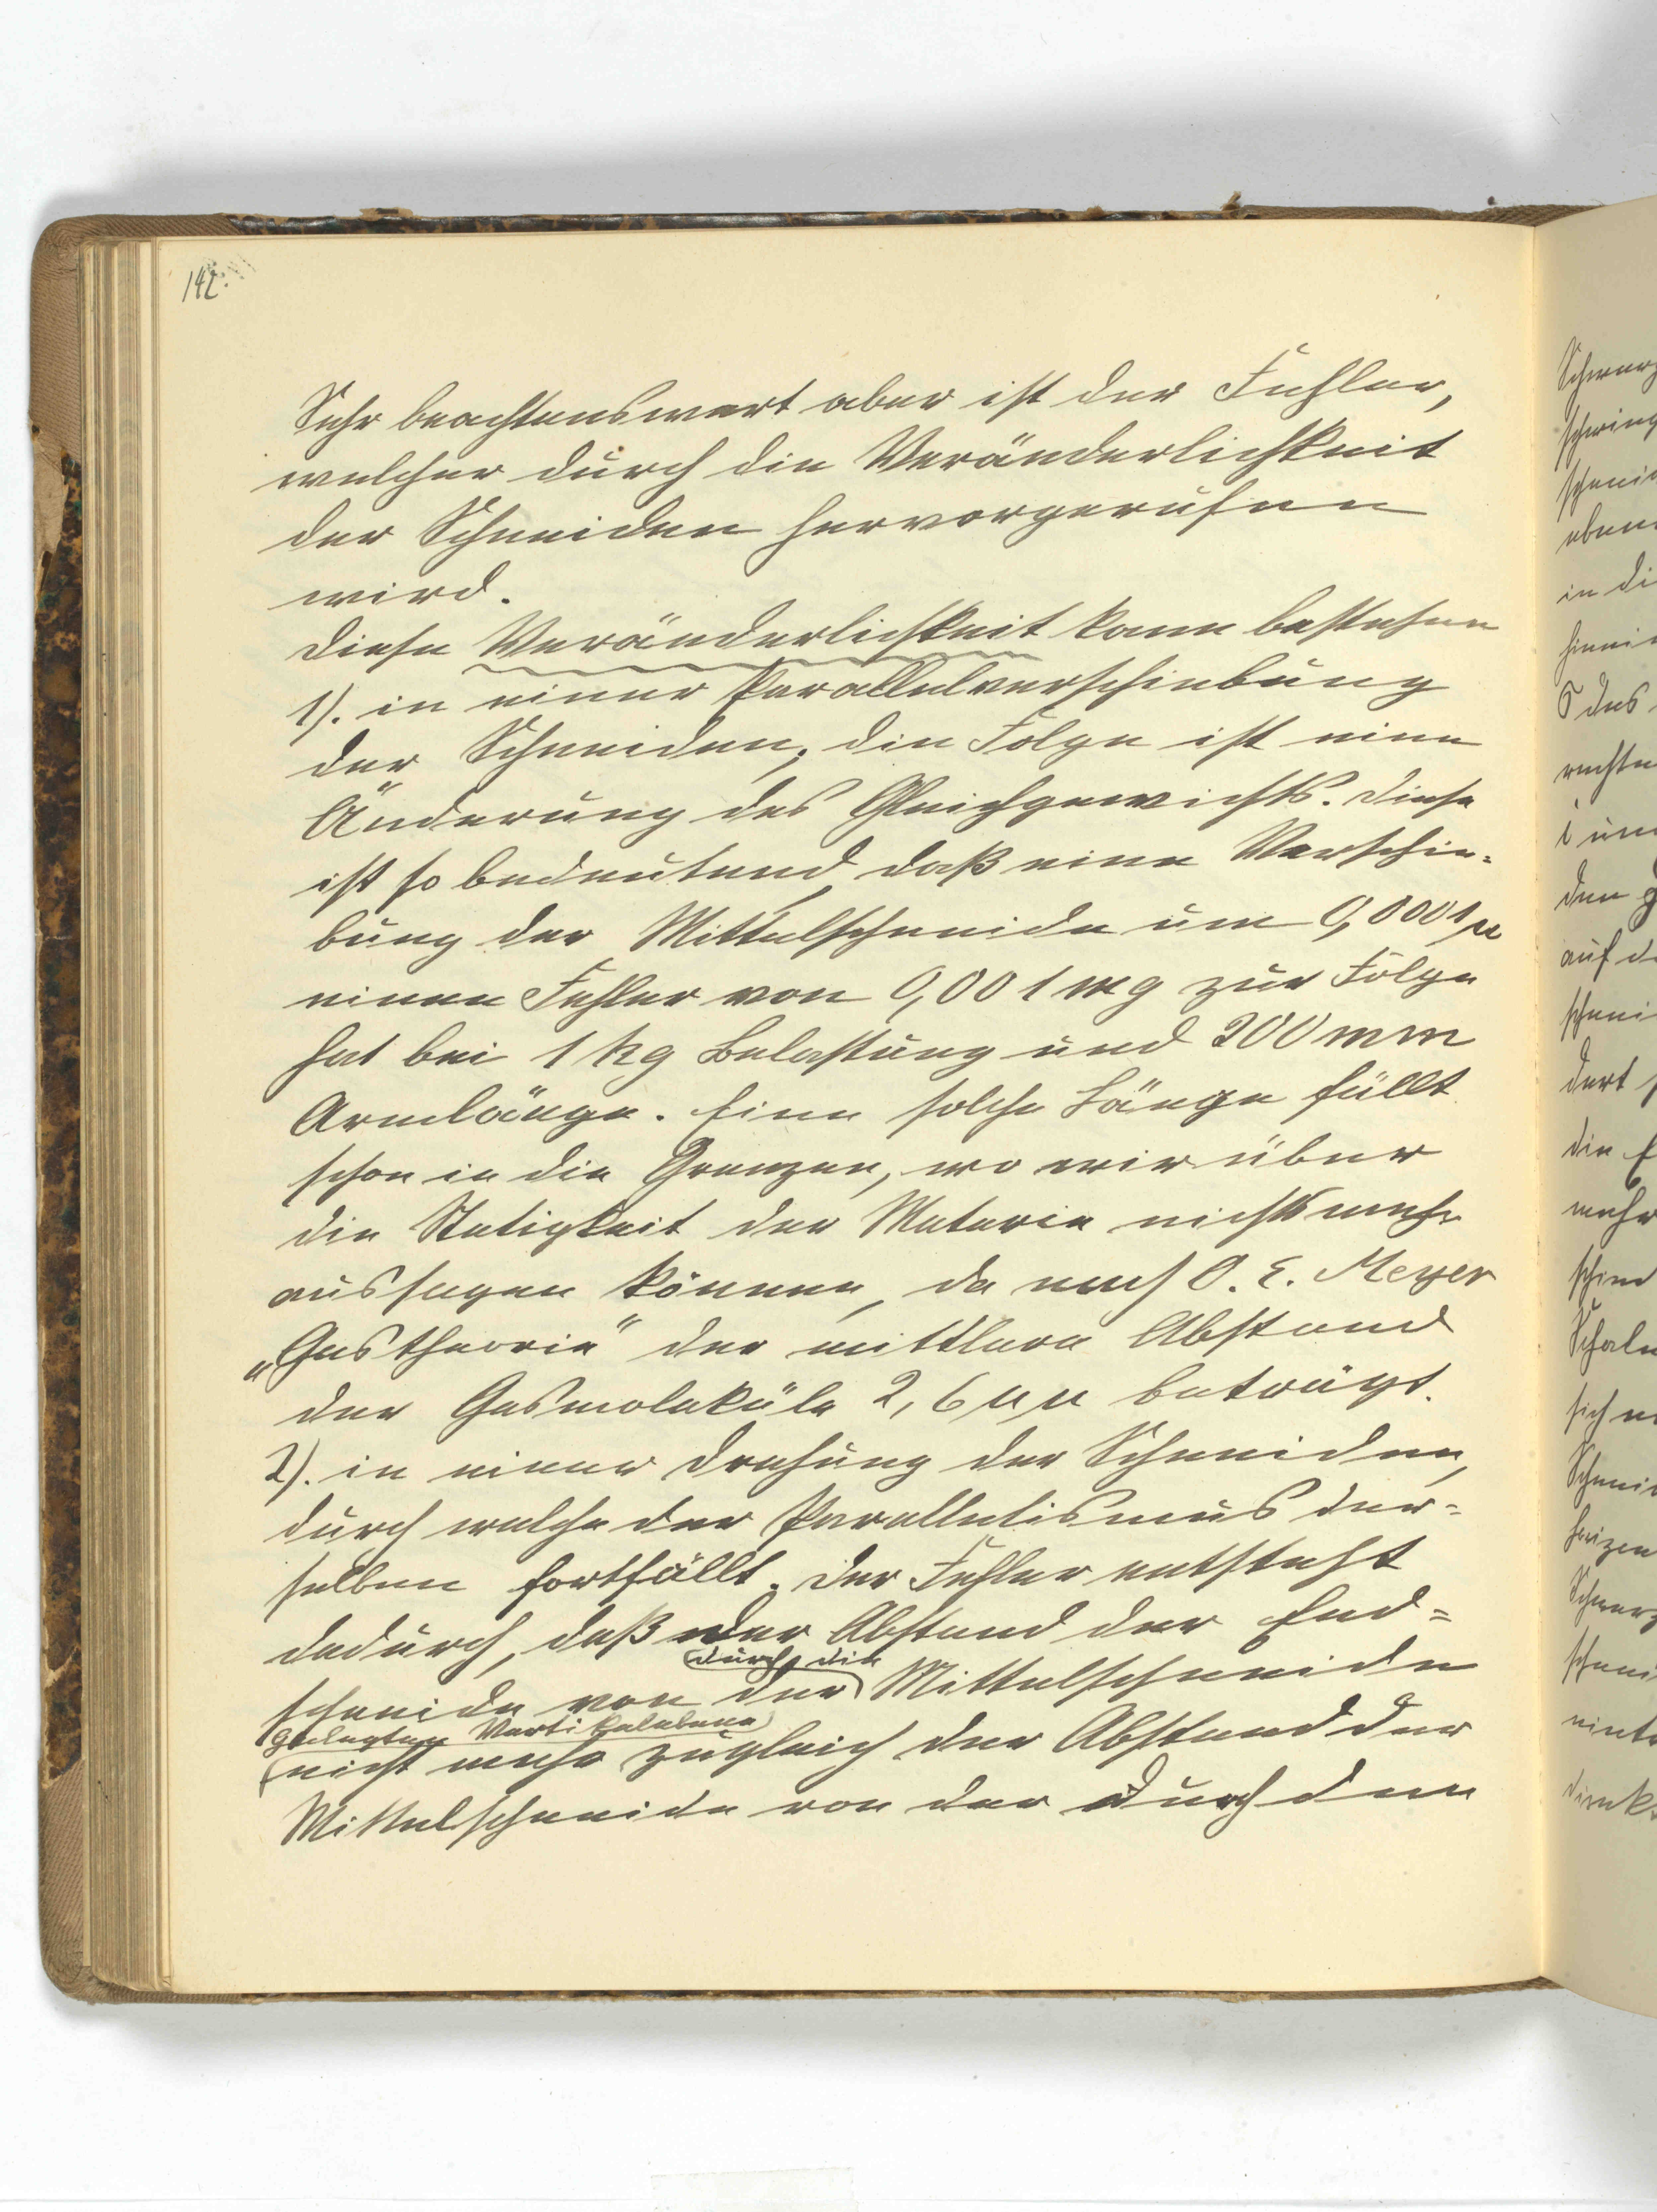 142.
Sehr beachtenswert aber ist der Fehler,
welcher durch die Veränderlichkeit
der Schneiden hervorgerufen
wird.
Diese Veränderlichkeit kann bestehen
1). in einer Parallelverschiebung
der Schneiden; die Folge ist eine
Änderung des Gleichgewichts. Diese
ist so bedeutend, daß eine Verschie-
bung der Mittelschneide um 0,0001 µ
einen Fehler von 0,001 mg zur Folge
hat bei 1 kg Belastung und 200 mm
Armlänge. Eine solche Länge fällt
schon in die Grenzen, wo wir über
die Stetigkeit der Materie nichts mehr
aussagen können, da nach O. E. Meyer
„Gastheorie" der mittlere Abstand
der Gasmoleküle 2,6 µµ beträgt.
2). in einer Drehung der Schneiden,
durch welche der Parallelismus der-
selben fortfällt. Der Fehler entsteht
dadurch, daß der Abstand der End-
durch die
schneide von der Mittelschneide
gelegten Vertikalebene
nicht mehr zugleich der Abstand der
Mittelschneide von der durch den
Schwerz
schwing
schnei
eben
in di
hinei
des
rechte
i um
den g
auf d
schnei
dert
die E
mehr
schied
Schale
sich
Schnei
heizen
Schwerz
schnei
direkt